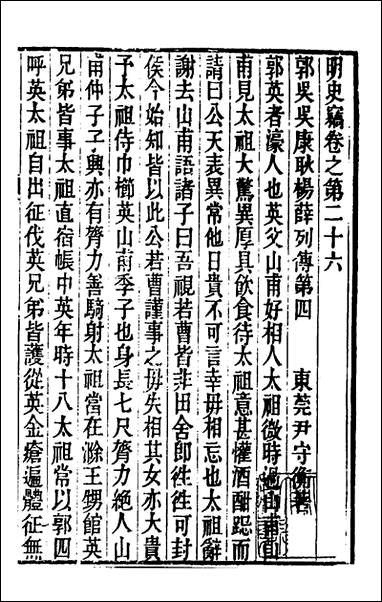 明史竊卷之第二十六
郭吳吳康耿楊薛列傳第四　東莞尹守衡著
郭英者濠人也英父山甫好相人太祖微時過山甫山
甫見太祖大驚異厚具飲食待太祖意甚懽酒酣跽而
請曰公天表異常他日貴不可言幸毋相忘也太祖辭
謝去山甫語諸子曰吾視若曹皆非田舍郎徃徃可封
侯今始知皆以此公若曹謹事之毋失相其女亦大貴
予太祖侍巾櫛英山甫季子也身長七尺膂力絕人山
甫仲子子興亦有膂力善騎射太祖當在滁王甥館英
兄弟皆事太祖直宿帳中英年時十八太祖常以郭四
呼英太祖自出征伐英兄弟皆護從英金瘡遍體征無